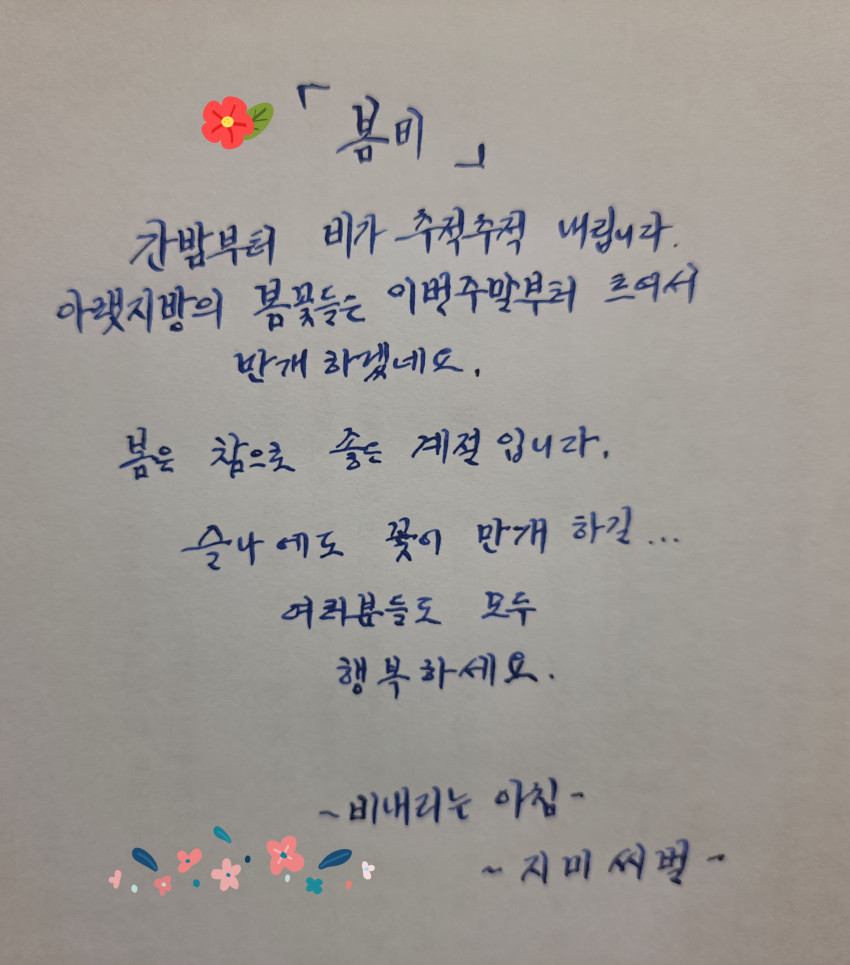 「봄비」
간밤부터 비가 추적추적 내립니다.
아랫지방의 봄꽃들은 이번주말부터
만개 하겠네요.
봄은 참으로 좋은 계절 입니다.
슬나에도 꽃이 만개 하길...
여러분들도 모두
행복하세요.
~비내리는 아침-
~지미씨벌~